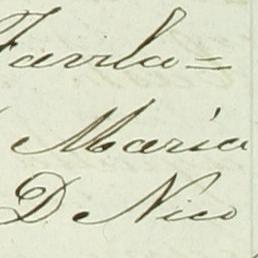 Favila=
Maria
D Nico